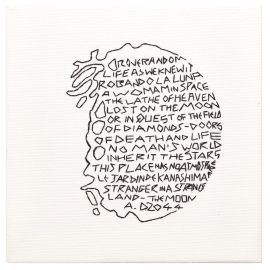 OR ONE RANDOM
LIFE AS WE KNEW IT
ROBANDO LA LUNA
A WOMAN IN SPACE
THE LATHE OF HEAVEN
LOST ON THE MOON
OR IN QUEST OF THE FIELD
OF DIAMONDS - DOORS
OF DEATH AND LIFE
NO MAN'S WORLD
INHERIT THE STARS
THIS PLACE HAS NO ATMOS
LE JARDIN DE KANASHIMA
STRANGER IN A STRANGE
LAND - THE MOON
A.D 2044